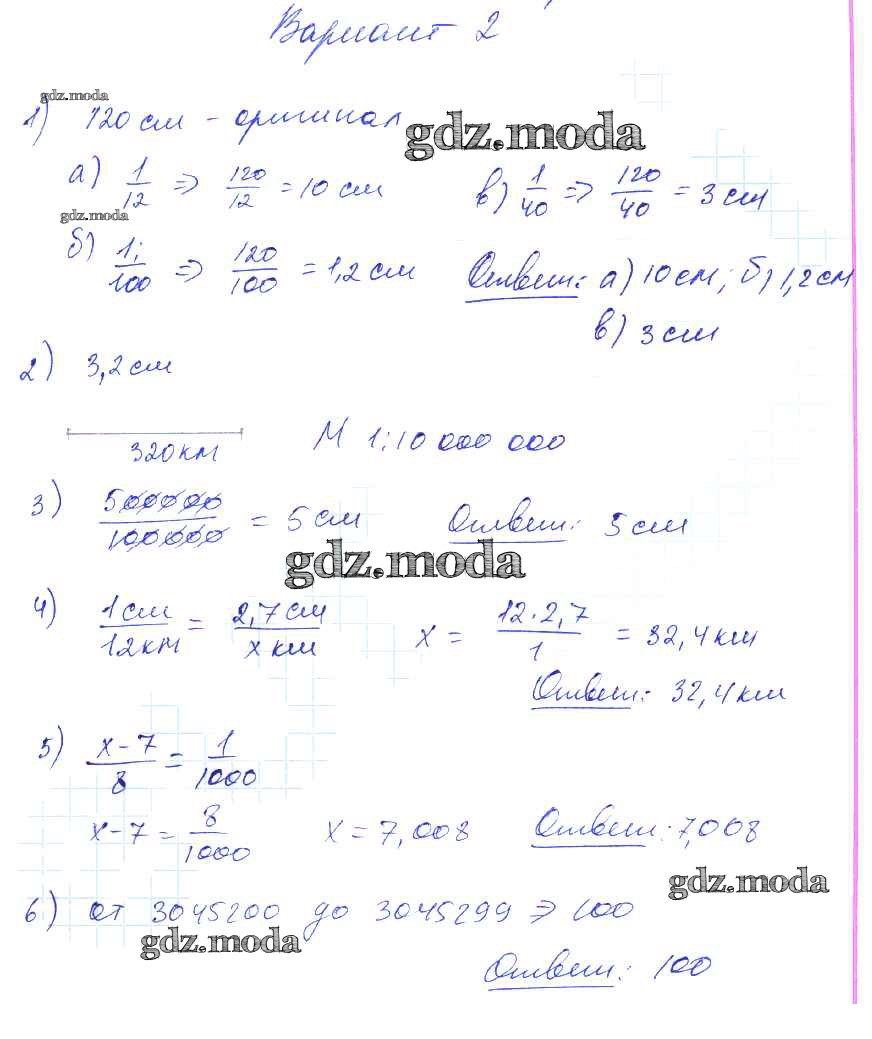 Вариант 2
gdz.moda
1) 120 см - оригинал
gdz.moda
а) 1/12 => 120/12 = 10 см
в) 1/40 => 120/40 = 3 см
gdz.moda
б) 1:/100 => 120/100 = 1,2 см
Ответ: а) 10 см; б) 1,2 см
в) 3 см
2) 3,2 см
320 км
М 1:10 000 000
3) 500000/100000 = 5 см
Ответ: 5 см
gdz.moda
4) 1 см/12 км = 2,7 см/х км
х = 12·2,7/1 = 32,4 км
Ответ: 32,4 км
5) х-7/8 = 1/1000
х-7 = 8/1000
х = 7,008
Ответ: 7,008
gdz.moda
6) от 3045200 до 3045299 => 100
gdz.moda
Ответ: 100